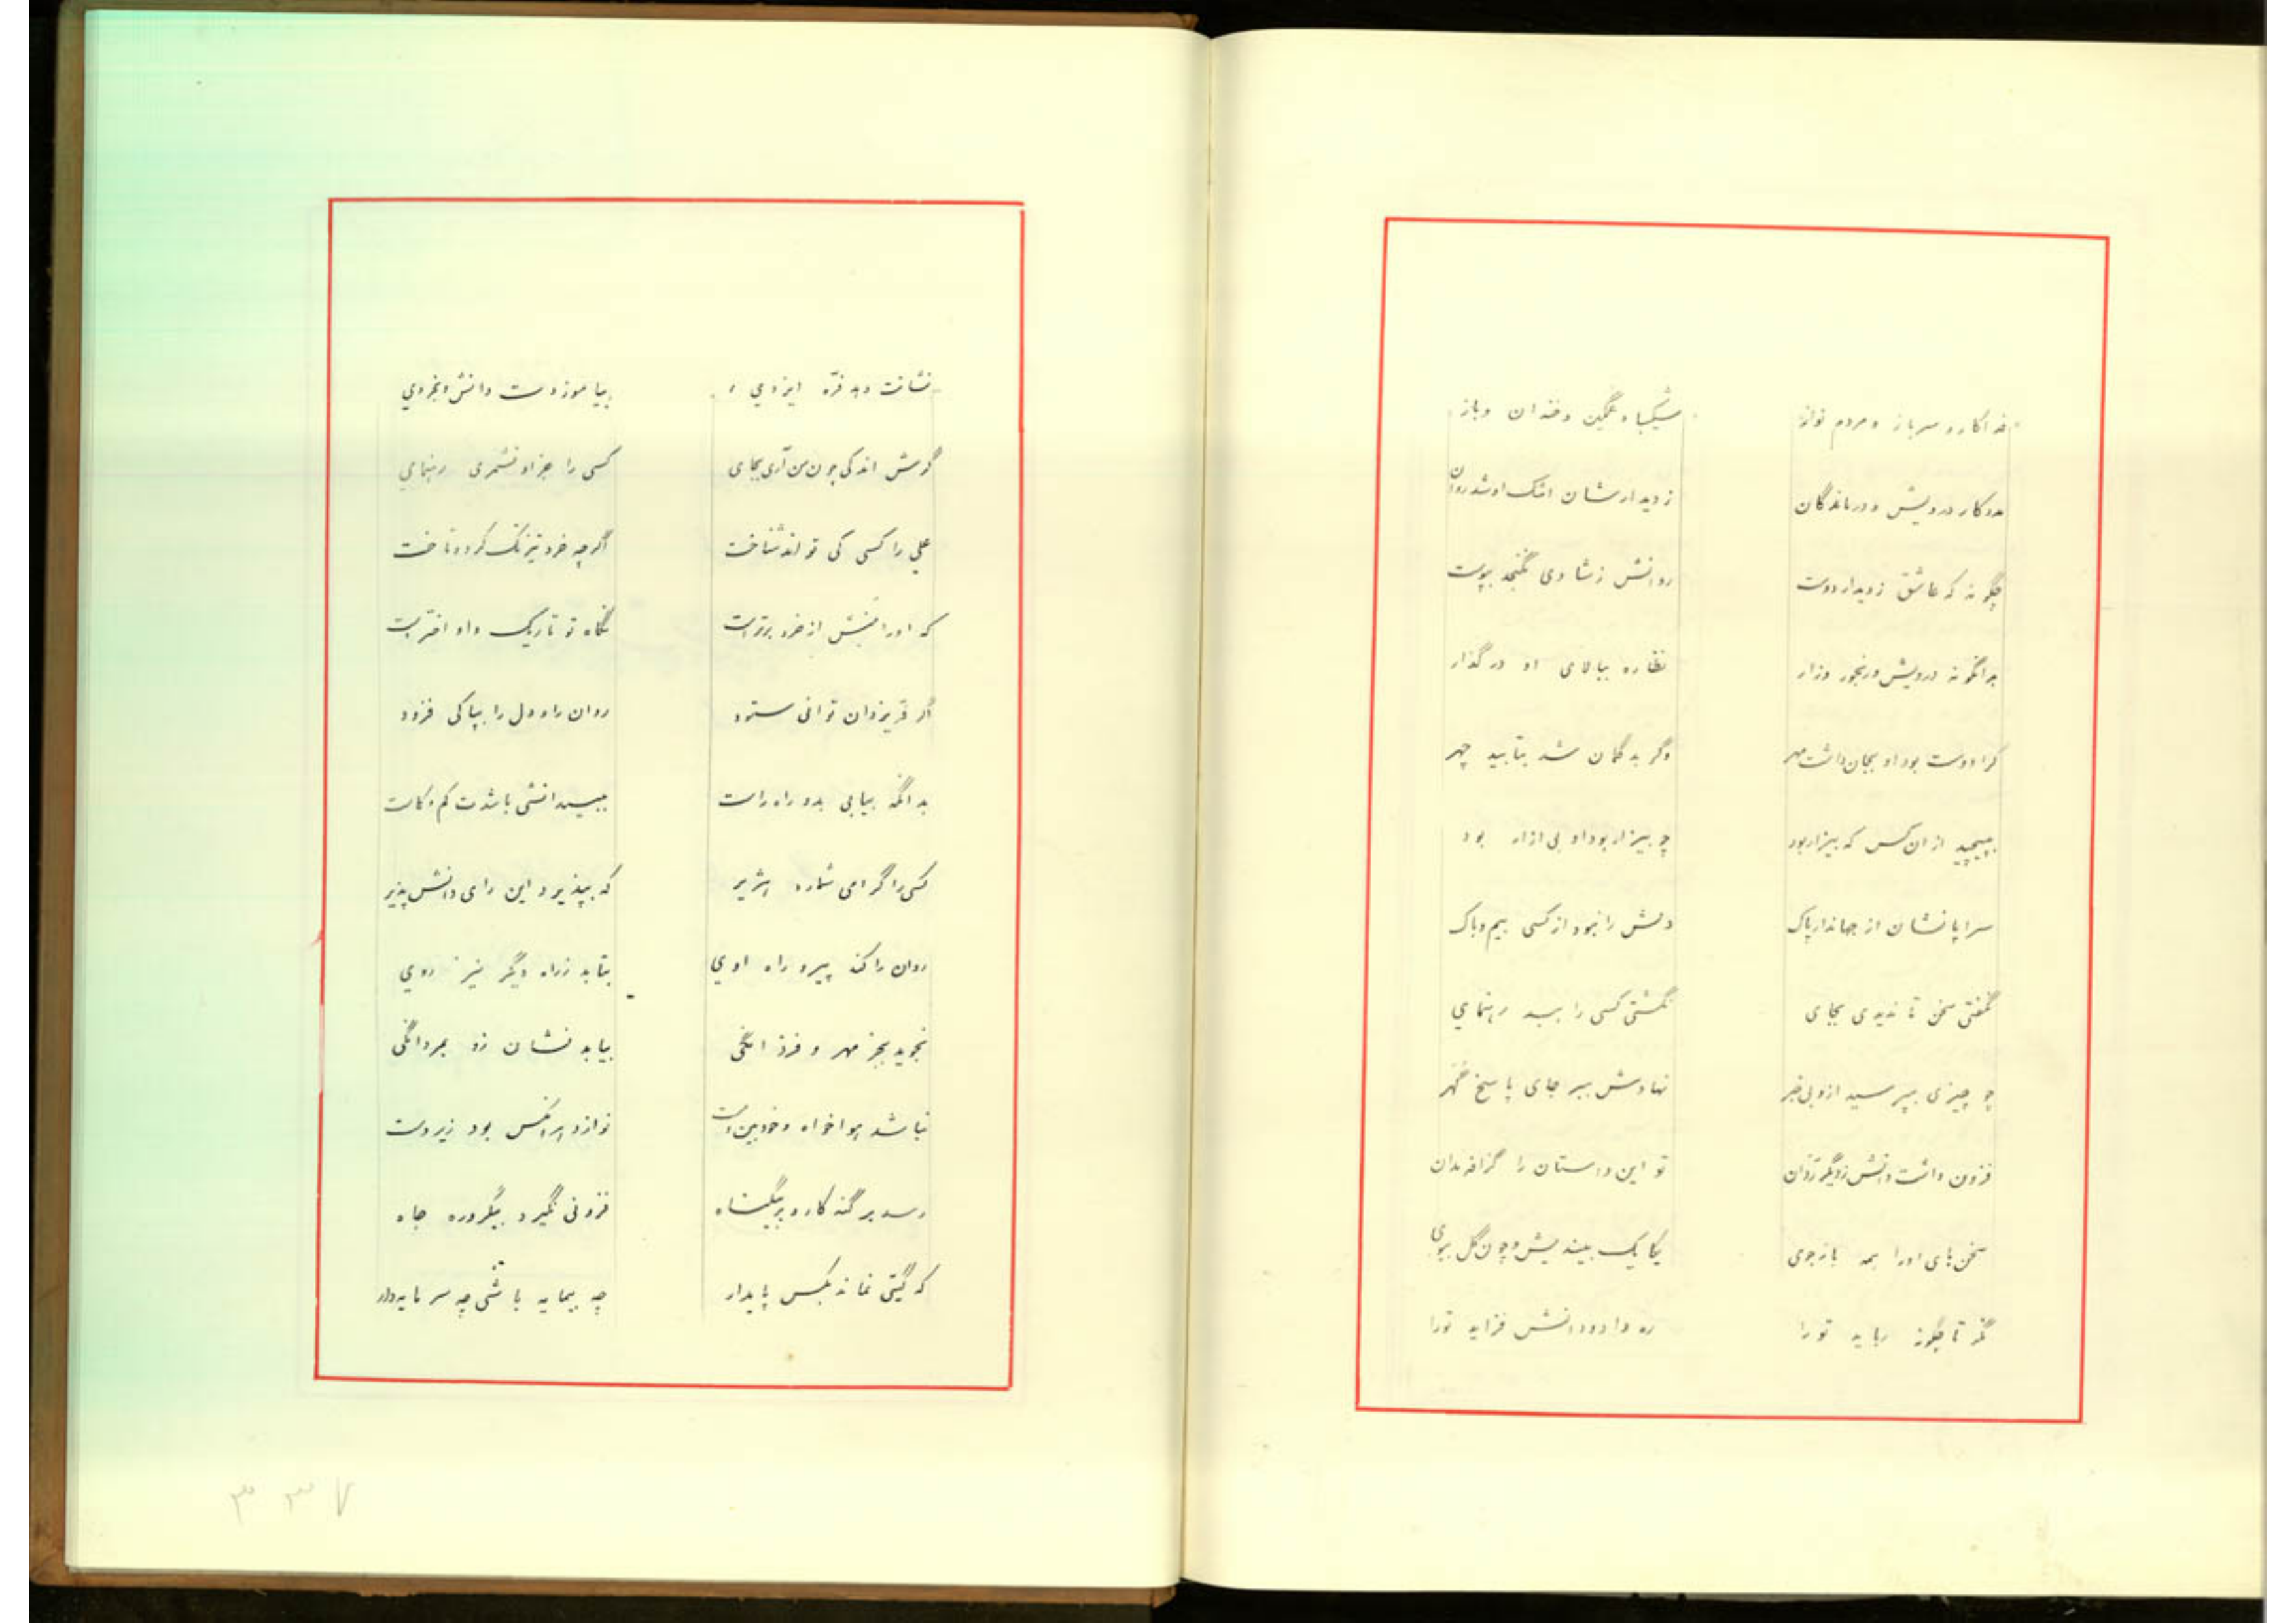 فداکار و سرباز و مردم نواز شکیبا و غمگین و خندان و باز
مددکار درویش و درماندگان ز دیدارشان اشک او شد روان
چگونه که عاشق ز دیدار دوست روانش ز شادی نگنجد بپوست
بدانگونه درویش و رنجور و زار نظاره ببالای او در گذار
کرا دوست بود او بجان داشت مهر وگر بدگمان شد بتابید چهر
بپیچید از ان کس که بیزار بود چو بیزار بود او بی ازار بود
سراپا نشان از جهاندار پاک دلش را نبود از کسی بیم و باک
نگفتی سخن تا ندیدی بجای نگشتی کسی را ببد رهنمای
چو چیزی بپرسید ازو بی خبر نهادش ببر جای پاسخ گهر
فزون داشت دانش ز دیگر زنان تو این داستان را گزافه مدان
سخن های او را همه بازجوی یکایک بیندیش و چون گل ببوی
نگر تا چگونه رباید تو را ره داد و دانش فزاید تورا
نشانت دهد فرّه ایزدی بیاموزدت دانش و بخردی
گرش اندکی چون من آری بجای کسی را جز او نشمری رهنمای
علی را کسی کی تواند شناخت اگرچه خرد تیزتک کرد و تاخت
که او را منش از خرد برتر است نگاه تو تاریک و او اختر است
اگر فر یزدان توانی ستود روان را و دل را بپاکی فزود
بدانگه بیابی بدو راه راست ببیدانشی باشدت کم و کاست
کسی را گرامی شمارد هژیر که بپذیرد این رای دانش پذیر
روان را کند پیرو راه اوی بتابد ز راه دگر نیز روی
نجوید بجز مهر و فرزانگی بیابد نشان زو بمردانگی
نباشد هوا خواه و خودبین است نوازد هر انکس بود زیردست
رسد بر گنه کار و بر بیگناه فزونی نگیرد بیکروزه جاه
که گیتی نماند بکس پایدار چه بیمایه باشی چه سرمایه دار
۳۳۷